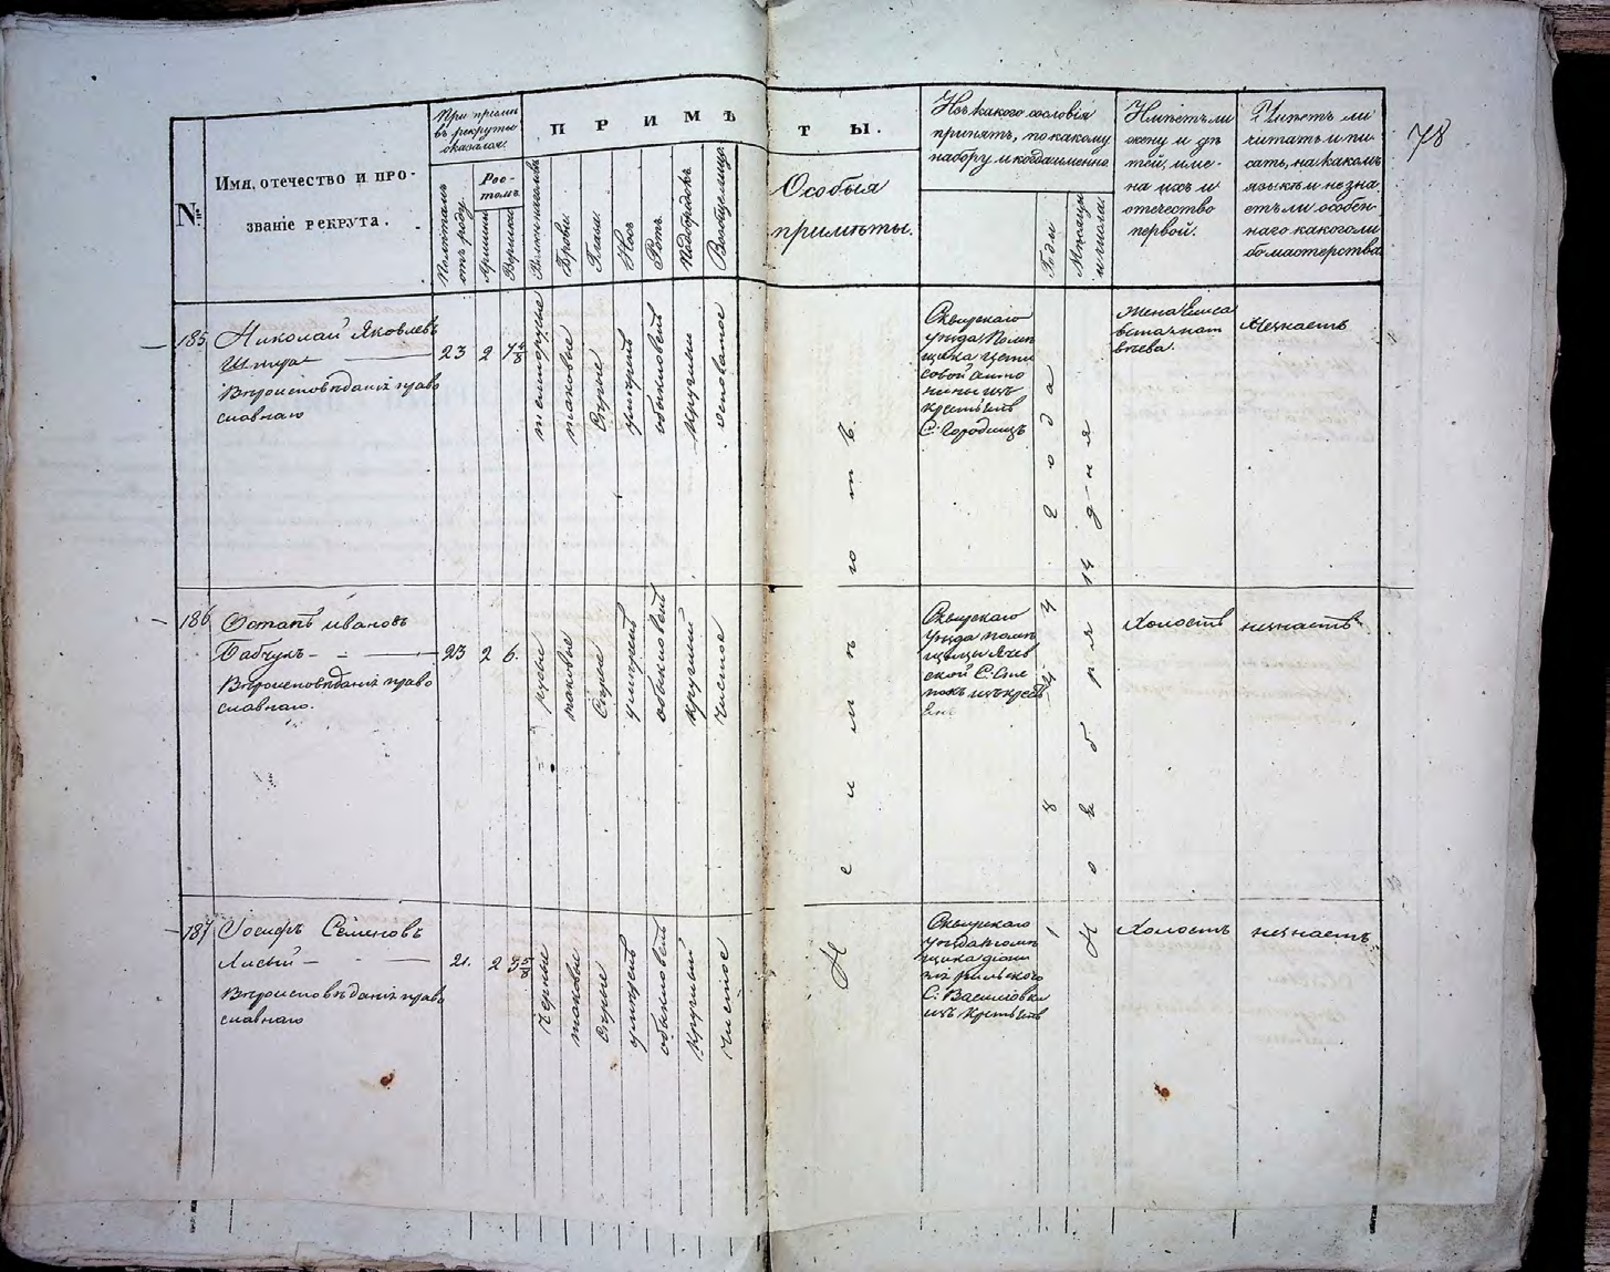 78
№
Имя, отечество и про-
званіе рекрута.
При пріемѣ
въ рекруты
оказался.
Полѣтамъ
отъ роду.
Рос-
томъ
Аршинъ
Вершковъ
ПРИМѢТЫ.
Брови.
Глаза.
Носъ
Ротъ.
Подбородокъ
Вообщелице
Особыя
примѣты.
Изъ какого сословія
принятъ, по какому
набору и когда именно
Годы
Мѣсяцы
и числа.
Имѣетъ ли
жену и дѣ
тей, име-
на ихъ и
отечество
первой.
Умѣетъ ли
читать и пи-
сать, на какомъ
языкѣ и не зна
етъ ли особен-
наго какого ли
бо мастерства
185
Николай Яковлевъ
Шпира
Вѣроисповѣданія право
славнаго
23
2
темнорусые
таковые
Сѣрые
умѣренъ
обыкновенъ
круглый
осповатое
Сквирскаго
уѣзда Помѣ
щика
крестьянъ
С. Городищъ
Жена Елиса
вета Мат
вѣева.
Незнаетъ
186
Остапъ Ивановъ
Бабчукъ
Вѣроисповѣданія право
славнаго.
23
2
6.
русые
таковые
Сѣрые
умѣренъ
обыкновенъ
круглый
чистое
Сквирскаго
уѣзда помѣ
Холостъ
незнаетъ
187
Іосифъ Семеновъ
Лисый
Вѣроисповѣданія право
славнаго
21.
2
3 5/8
черные
таковые
Сѣрые
умѣренъ
обыкновенъ
круглый
чистое
Неимѣетъ.
Сквирскаго
уѣзда помѣ
щика
С. Василовки
изъ крестьянъ
184 года
Ноября 14 дня
Холостъ
незнаетъ